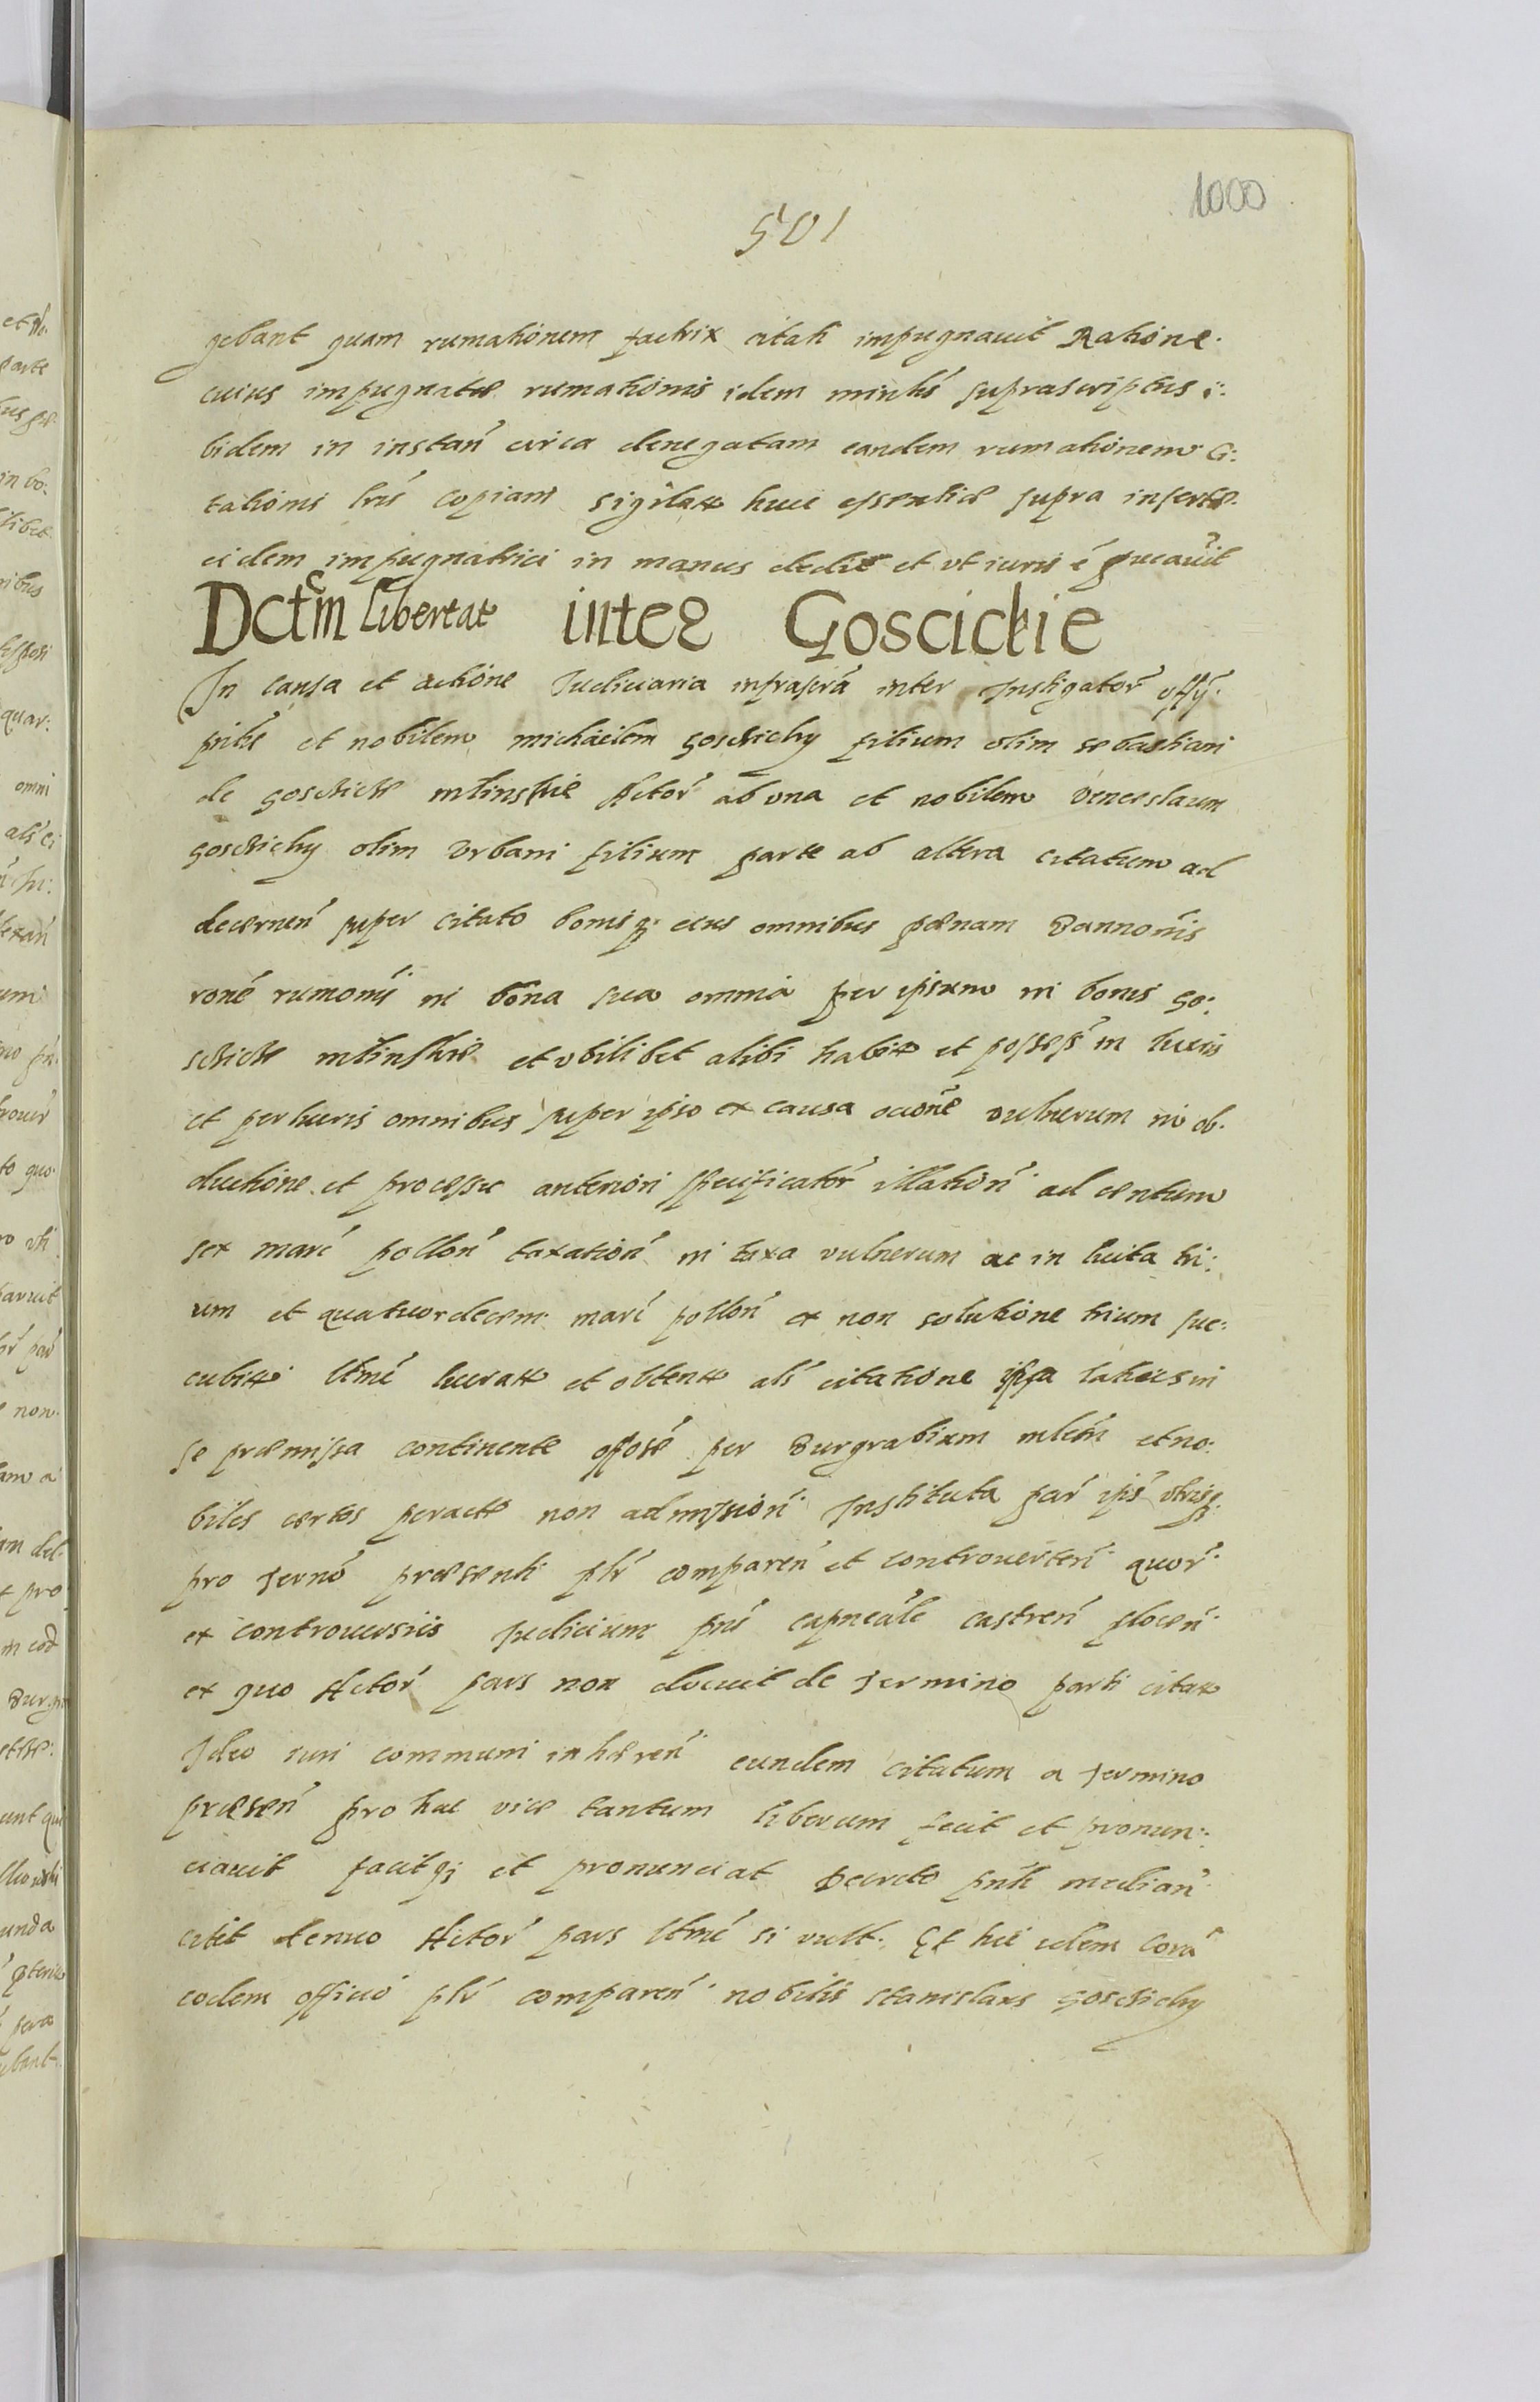 1000
501
gebant quam rumationem factrix citati impugnauit Ratione
cuius impugnatæ rumationis idem minĩs suprascriptus i:
bidem in instañ circa denegatam eandem rumationem Ci:
tationis lrĩs copiam sigilatæ huic essentiæ supra insertæ
eidem impugnatrici in manus dedit et vt iuris é
Dctm̃ libertat inter Goscickie
In causa et actione Iudiciaria infrascrã inter Instigatorẽ offy̾
et nobilem michaelem gosczicky filium olim sebastiani
de goscziczæ mlinskie Actor̃ ab vna et nobilem venceslaum
goscziczky olim Vrbani filium parte ab altera citatum ad
decerneñ super citato bonisq; eius omnibus pænam Bannoñis
roné rumoñis in bona sua omnia per ipsum in bonis go:
scziczæ mlinskie et vbilibet alibi habitæ et possess̃ in lucris
et perlucris omnibus super ipso ex causa vulnerum in ob:
ductione et processu anteriori specificator̃ illatioñ ad centum
sex marc̃ polloñ taxatioñ in taxa vulnerum ac in lucita tri:
um et quatuordecem marc̃ polloñ ex non solutione trium suc:
cubitæ ltmẽ lucratæ et obtentæ als̃ citatione ipsa latius in
se præmissa continente per Burgrabium et no:
biles certos peractæ non admissioñ Instituta par̃ ips̃ vtrisq;
pro termo præsenti plr̃ compareñ et controuerteñ quor̃
ex controuersiis Iudicium pñs capneale castreñ ploceñ
ex quo Actor̃ pars non docuit de termino parti citatæ
Ideo iuri communi inhæreñ eundem citatum a termino
præseñ pro hac vice tantum liberum fecit et pronun:
ciauit facitq; et pronunciat Decreto pñti mediañ
citet denuo Actor̃ pars ltmẽ si vult. Et hic idem corã
eodem officio plr̃ compareñ nobilis stanislaus goscziczky